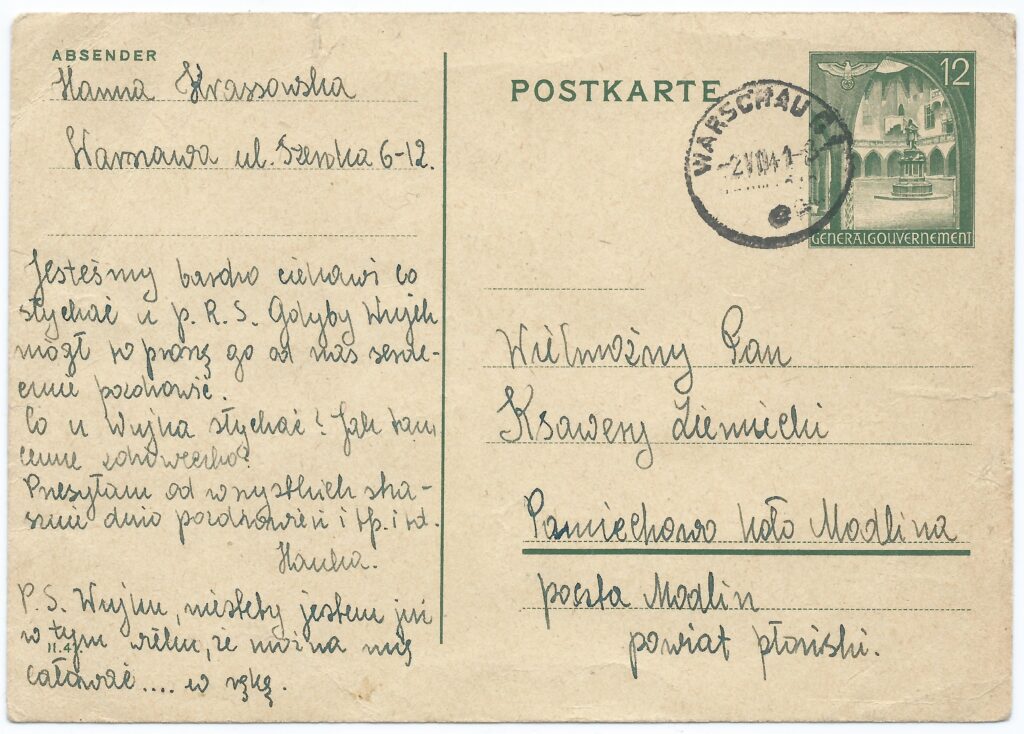 ABSENDER
Hanna Krassowska
Warszawa ul. Szeroka 6-12.
Jesteśmy bardzo ciekawi co
słychać u p. R. S. Gdyby Wujek
mógł to proszę go od nas serde-
cznie pozdrowić.
Co u Wujka słychać? Jak tam
cenne zdroweczko?
Przesyłam od wszystkich stra-
sznie dużo pozdrowień i tp. i td.
Hanka.
P.S. Wujku, niestety jestem już
w tym wieku, że można mię
II.41.
całować.... w rękę.
POSTKARTE
WARSCHAU C1
12
GENERALGOUVERNEMENT
Wielmożny Pan
Ksawery Ziemiecki
Pamiechowo koło Modlina
poczta Modlin
powiat płoński.